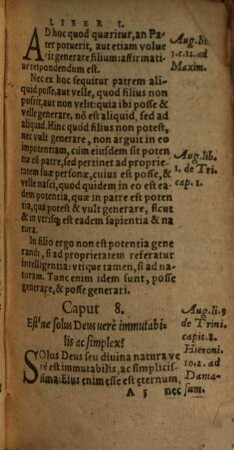 LIBER I.
AD hoc quod quæritur, an Pa
ter potuerit, aut etiam volue
rit generare filium: affirmati
uè respondendum est.
Nec ex hoc sequitur patrem ali
quid posse, aut velle, quod filius non
possit, aut non velit: quia ibi posse &
velle generare, nõ est aliquid, sed ad
aliquid. Hinc quod filius non potest,
nec vult generare, non arguit in eo
impotentiam, cùm eiusdem sit poten
tiæ cũ patre, sed pertinet ad proprie
tatẽ suæ personæ, cuius est posse, &
velle nasci, quod quidem in eo est ea
dem potentia, quæ in patre est poten
tia, quâ potest & vult generare, sicut
& in vtrisq; est eadem sapientia & na
tura.
In filio ergo non est potentia gene
randi, si ad proprietatem referatur
intelligentia: vtique tamen, si ad na
turam. Tunc enim idem sunt, posse
generare, & posse generari.
Caput 8.
Est'ne solus Deus verè immutabi
lis ac simplex?
SOlus Deus seu diuina natura ve
rè est immutabilis, ac simplicis
sima: Eius enim esse est æternum,
A 3 nec
Aug. li.
3. c. 12. ad
Maxim.
Aug. lib.
1. de Tri.
cap. 1.
Aug. li. 5
de Trini
capit. 2.
Hieroni
to. 2. ad
Dama-
sum.